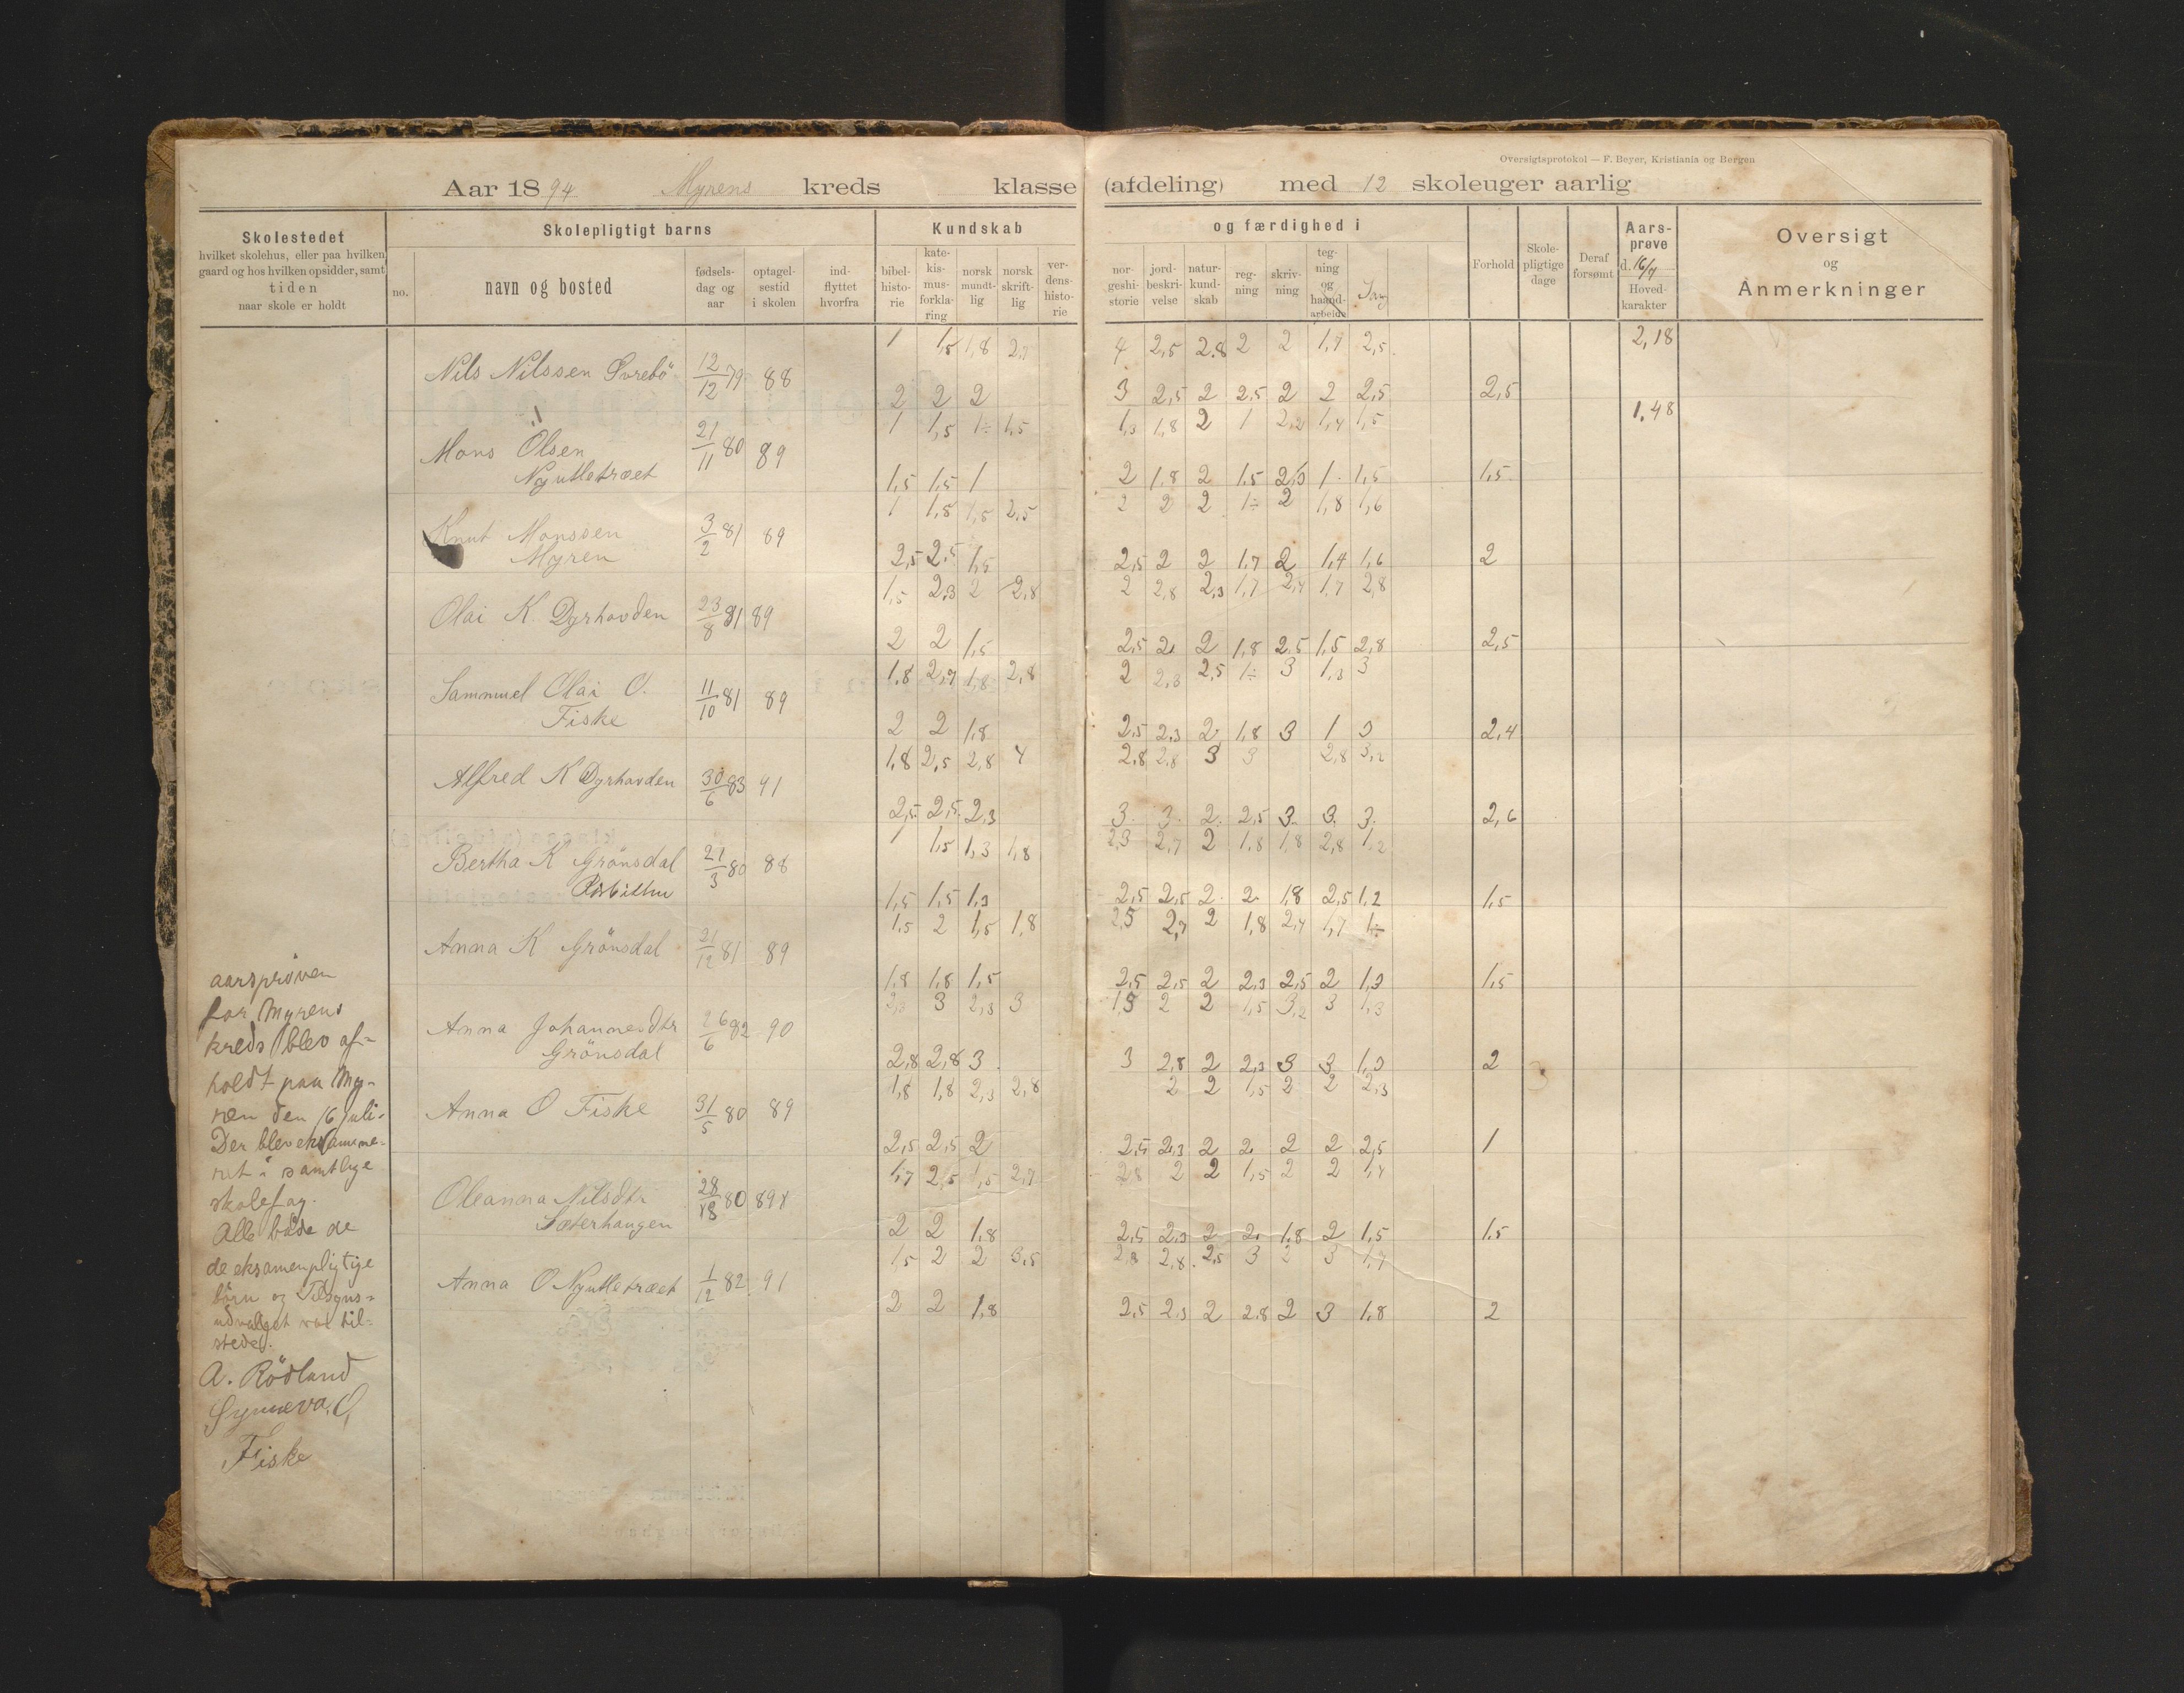 Oversigtsprotokol — F. Beyer, Kristiania og Bergen
Aar 1894 Myrens kreds klasse (afdeling) med 12 skoleuger aarlig
Skolestedet
hvilket skolehus, eller paa hvilken
gaard og hos hvilken opsidder, samt
tiden
naar skole er holdt
Skolepligtigt barns
no.
navn og bosted
fødsels-
dag og
aar
optagel-
sestid
i skolen
ind-
flyttet
hvorfra
Kundskab
bibel-
histo-
rie
kate-
kis-
mus-
forkla-
ring
norsk
mundt-
lig
norsk
skrift-
lig
ver-
dens-
histo-
rie
og færdighed i
nor-
geshi-
storie
jord-
beskri-
velse
natur-
kund-
skab
reg-
ning
skriv-
ning
teg-
ning
og
haand-
arbeide
Sang
Forhold
Skole-
pligtige
dage
Deraf
forsømt
Aars-
prøve
d. 16/7
Hoved-
karakter
Oversigt
og
Anmerkninger
1 1,5 1,8 2,7 4 2,5 2.8 2 2 1,7 2,5 2,18
Nils Nilssen Svrebö 12/12 79 88
2 2 2 3 2,5 2 2,5 2 2 2,5 2,5
1 1,5 1÷ 1,5 1,3 1,8 2 1 2,2 1,4 1,5 1,48
Mons Olsen 21/11 80 89
Nyutletræet
1,5 1,5 1 2 1,8 2 1,5 2,3 1 1,5 1,5
1 1,8 1,5 2,5 2 2 2 1÷ 2 1,8 1,6
Knut Monssen 3/2 81 89
Myren
2,5 2,5 1,5 2,5 2 2 1,7 2 1,4 1,6 2
1,5 2,3 2 2,8 2 2,8 2,3 1,7 2,4 1,7 2,8
Olai K. Dyrhovden 23/8 81 89
2 2 1,5 2,5 2 2 1,8 2,5 1,5 2,8 2,5
1,8 2,7 1,8 2,8 2 2,8 2,5 1÷ 3 1,3 3
Sammuel Olai O. 11/10 81 89
Fiske
2 2 1,8 2,5 2,3 2 1,8 3 1 3 2,4
1,8 2,5 2,8 4 2,8 2,8 3 3 2,8 3,2
Alfred K Dyrhovden 30/6 83 91
2,5 2,5 2,3 3 3 2 2,5 3 3 3 2,6
1 1,5 1,3 1,8 2,3 2,7 2 1,8 1,8 2,8 1,2
Bertha K Grönsdal 21/3 80 88
1,5 1,5 1,3 2,5 2,5 2 2 1,8 2,5 1,2 1,5
1,5 2 1,5 1,8 2,5 2,7 2 1,8 2,4 1,7 1÷
Anna K Grönsdal 21/12 81 89
1,8 1,8 1,5 2,5 2,5 2 2,3 2,5 2 1,3 1,5
2,3 3 2,3 3 1,5 2 2 1,5 3,2 3 1,3
Anna Johannesdtr 26/6 82 90
Grönsdal
2,8 2,8 3 3 2,8 2 2,3 3 3 1,3 2
1,8 1,8 2,3 2,8 2 2 1,5 2 2 2,3
Anna O Fiske 31/5 80 89
2,5 2,5 2 2,5 2,3 2 2 2 2 2,5 1
1,7 2,5 1,5 2,7 2,8 2 2 1,5 2 2 1,4
Oleanna Nilsdtr 80 89
Sæterhaugen
2 2 1,8 2,5 2,3 2 2 1,8 2 1,5 1,5
1,5 2 2 3,5 2,8 2,8 2,5 3 2 3 1,7
Anna O Nyutletræet 1/12 82 91
2 2 1,8 2,5 2,3 2 2,8 2 3 1,8 2
aarspröven
for Myrens
kreds blev af-
holdt paa My-
ren den 16 Juli.
Der blev eksamine-
ret i samtlige
skolefag.
Alle både de
de eksamenpligtige
börn og Tilsyns-
udvalget var til-
stede.
A. Rödland
Synneva O.
Fiske